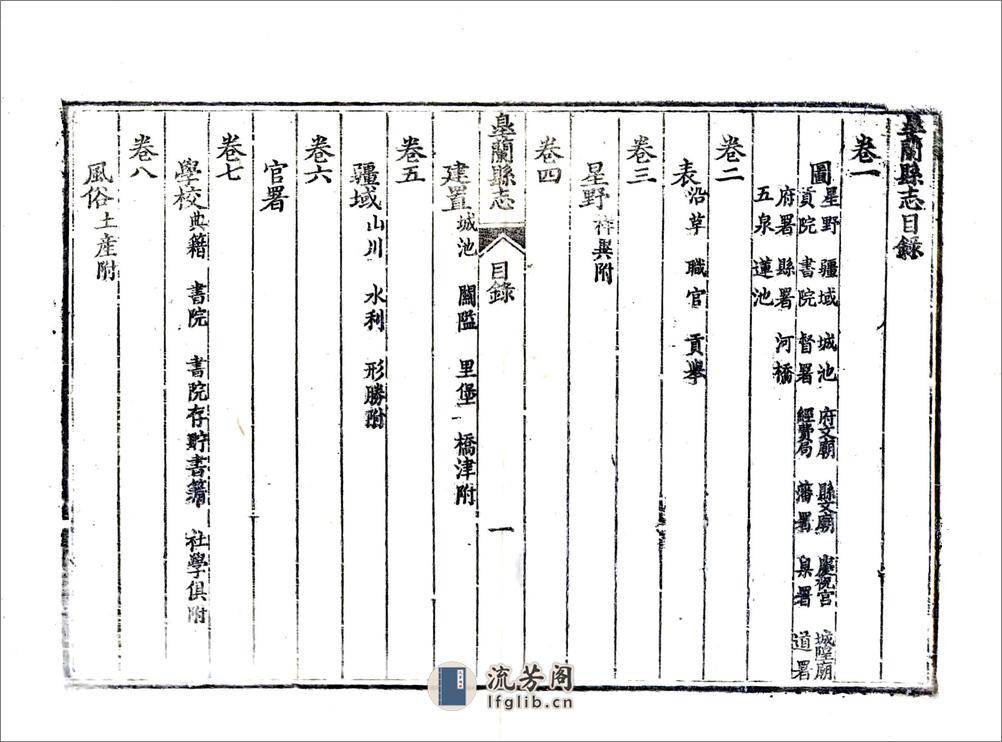 皐蘭縣志目錄
卷一
圖
星野 疆域 城池 府文廟 縣文廟 慶祝宮 城隍廟
貢院 書院 督署 經費局 藩署 臬署 道署
府署 縣署 河橋
五泉 蓮池
卷二
表 沿革 職官 貢舉
卷三
星野 祥異附
卷四
皐蘭縣志 目錄 一
建置 城池 關隘 里堡 橋津附
卷五
疆域 山川 水利 形勝附
卷六
官署
卷七
學校 典籍 書院 書院存貯書籍 社學俱附
卷八
風俗 土產附
流芳阁
lfglib.cn